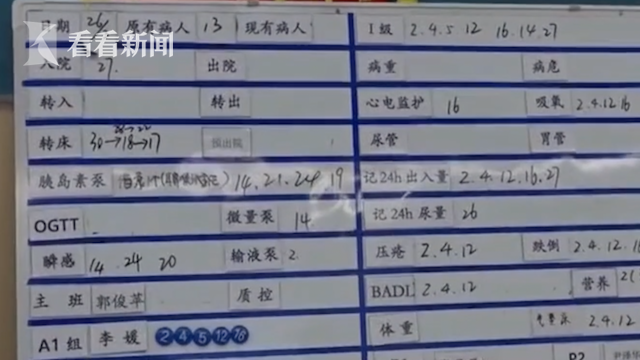 日期 26/ 原有病人 13 现有病人
看看新闻
入院 27. 出院
转入 转出
转床 30→18→17
预出院
胰岛素泵 14.21.24 19
OGTT 微量泵 14
瞬感 14 24 20 输液泵 2
主班 郭俊苹 质控
A1组 李媛 2 4 5 12 16
I级 2.4.5 12 16.14.27
病重 病危
心电监护 16 吸氧 2.4.12 16
尿管 胃管
记24h出入量 2.4.12.16.27
记24h尿量 26
压疮 2.4.12 跌倒 2.4.12.1
BADL 2.4.12 营养
体重 2.4.12